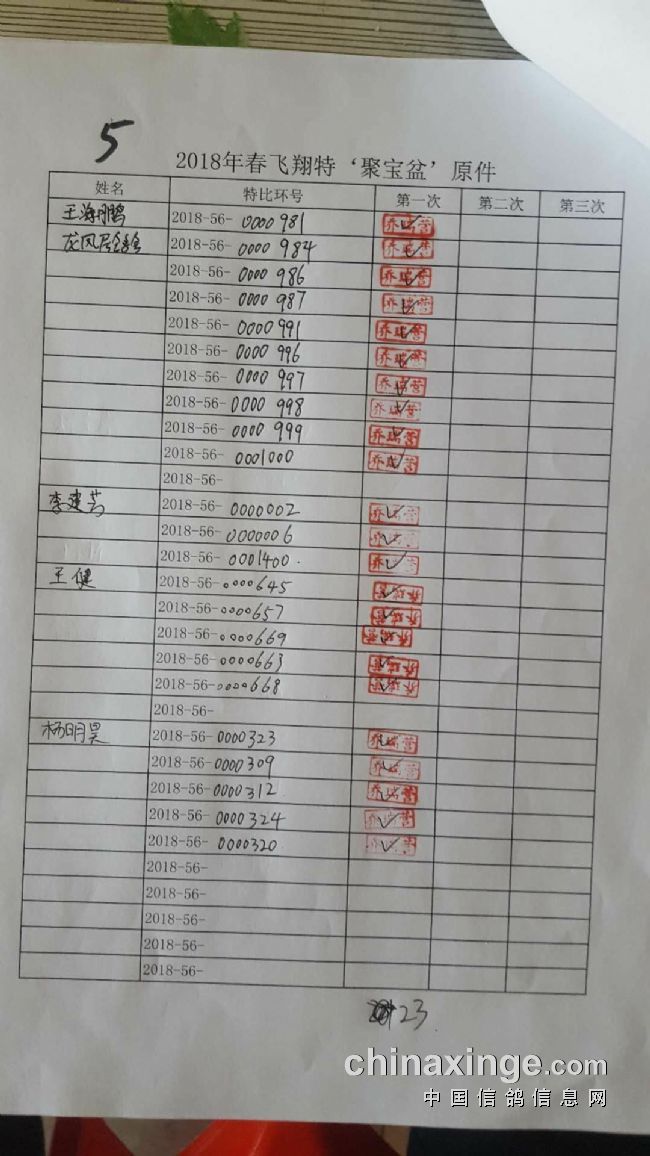 5
2018年春飞翔特‘聚宝盆’原件
姓名 特比环号 第一次 第二次 第三次
王海鹏 2018-56- 0000981 乔瑞营
龙凤居鸽舍 2018-56- 0000984 乔瑞营
2018-56- 0000986 乔瑞营
2018-56- 0000987 乔瑞营
2018-56- 0000991 乔瑞营
2018-56- 0000996 乔瑞营
2018-56- 0000997 乔瑞营
2018-56- 0000998 乔瑞营
2018-56- 0000999 乔瑞营
2018-56- 0001000 乔瑞营
2018-56-
李建芳 2018-56- 0000002 乔瑞营
2018-56- 0000006 乔瑞营
2018-56- 0001400. 乔瑞营
王健 2018-56- 0000645 乔瑞营
2018-56- 0000657 乔瑞营
2018-56- 0000669 乔瑞营
2018-56- 0000663 乔瑞营
2018-56- 0000668 乔瑞营
2018-56-
杨明昊 2018-56- 0000323 乔瑞营
2018-56- 0000309 乔瑞营
2018-56- 0000312 乔瑞营
2018-56- 0000324 乔瑞营
2018-56- 0000320 乔瑞营
2018-56-
2018-56-
2018-56-
2018-56-
2018-56-
23
chinaxinge.com
中国信鸽信息网